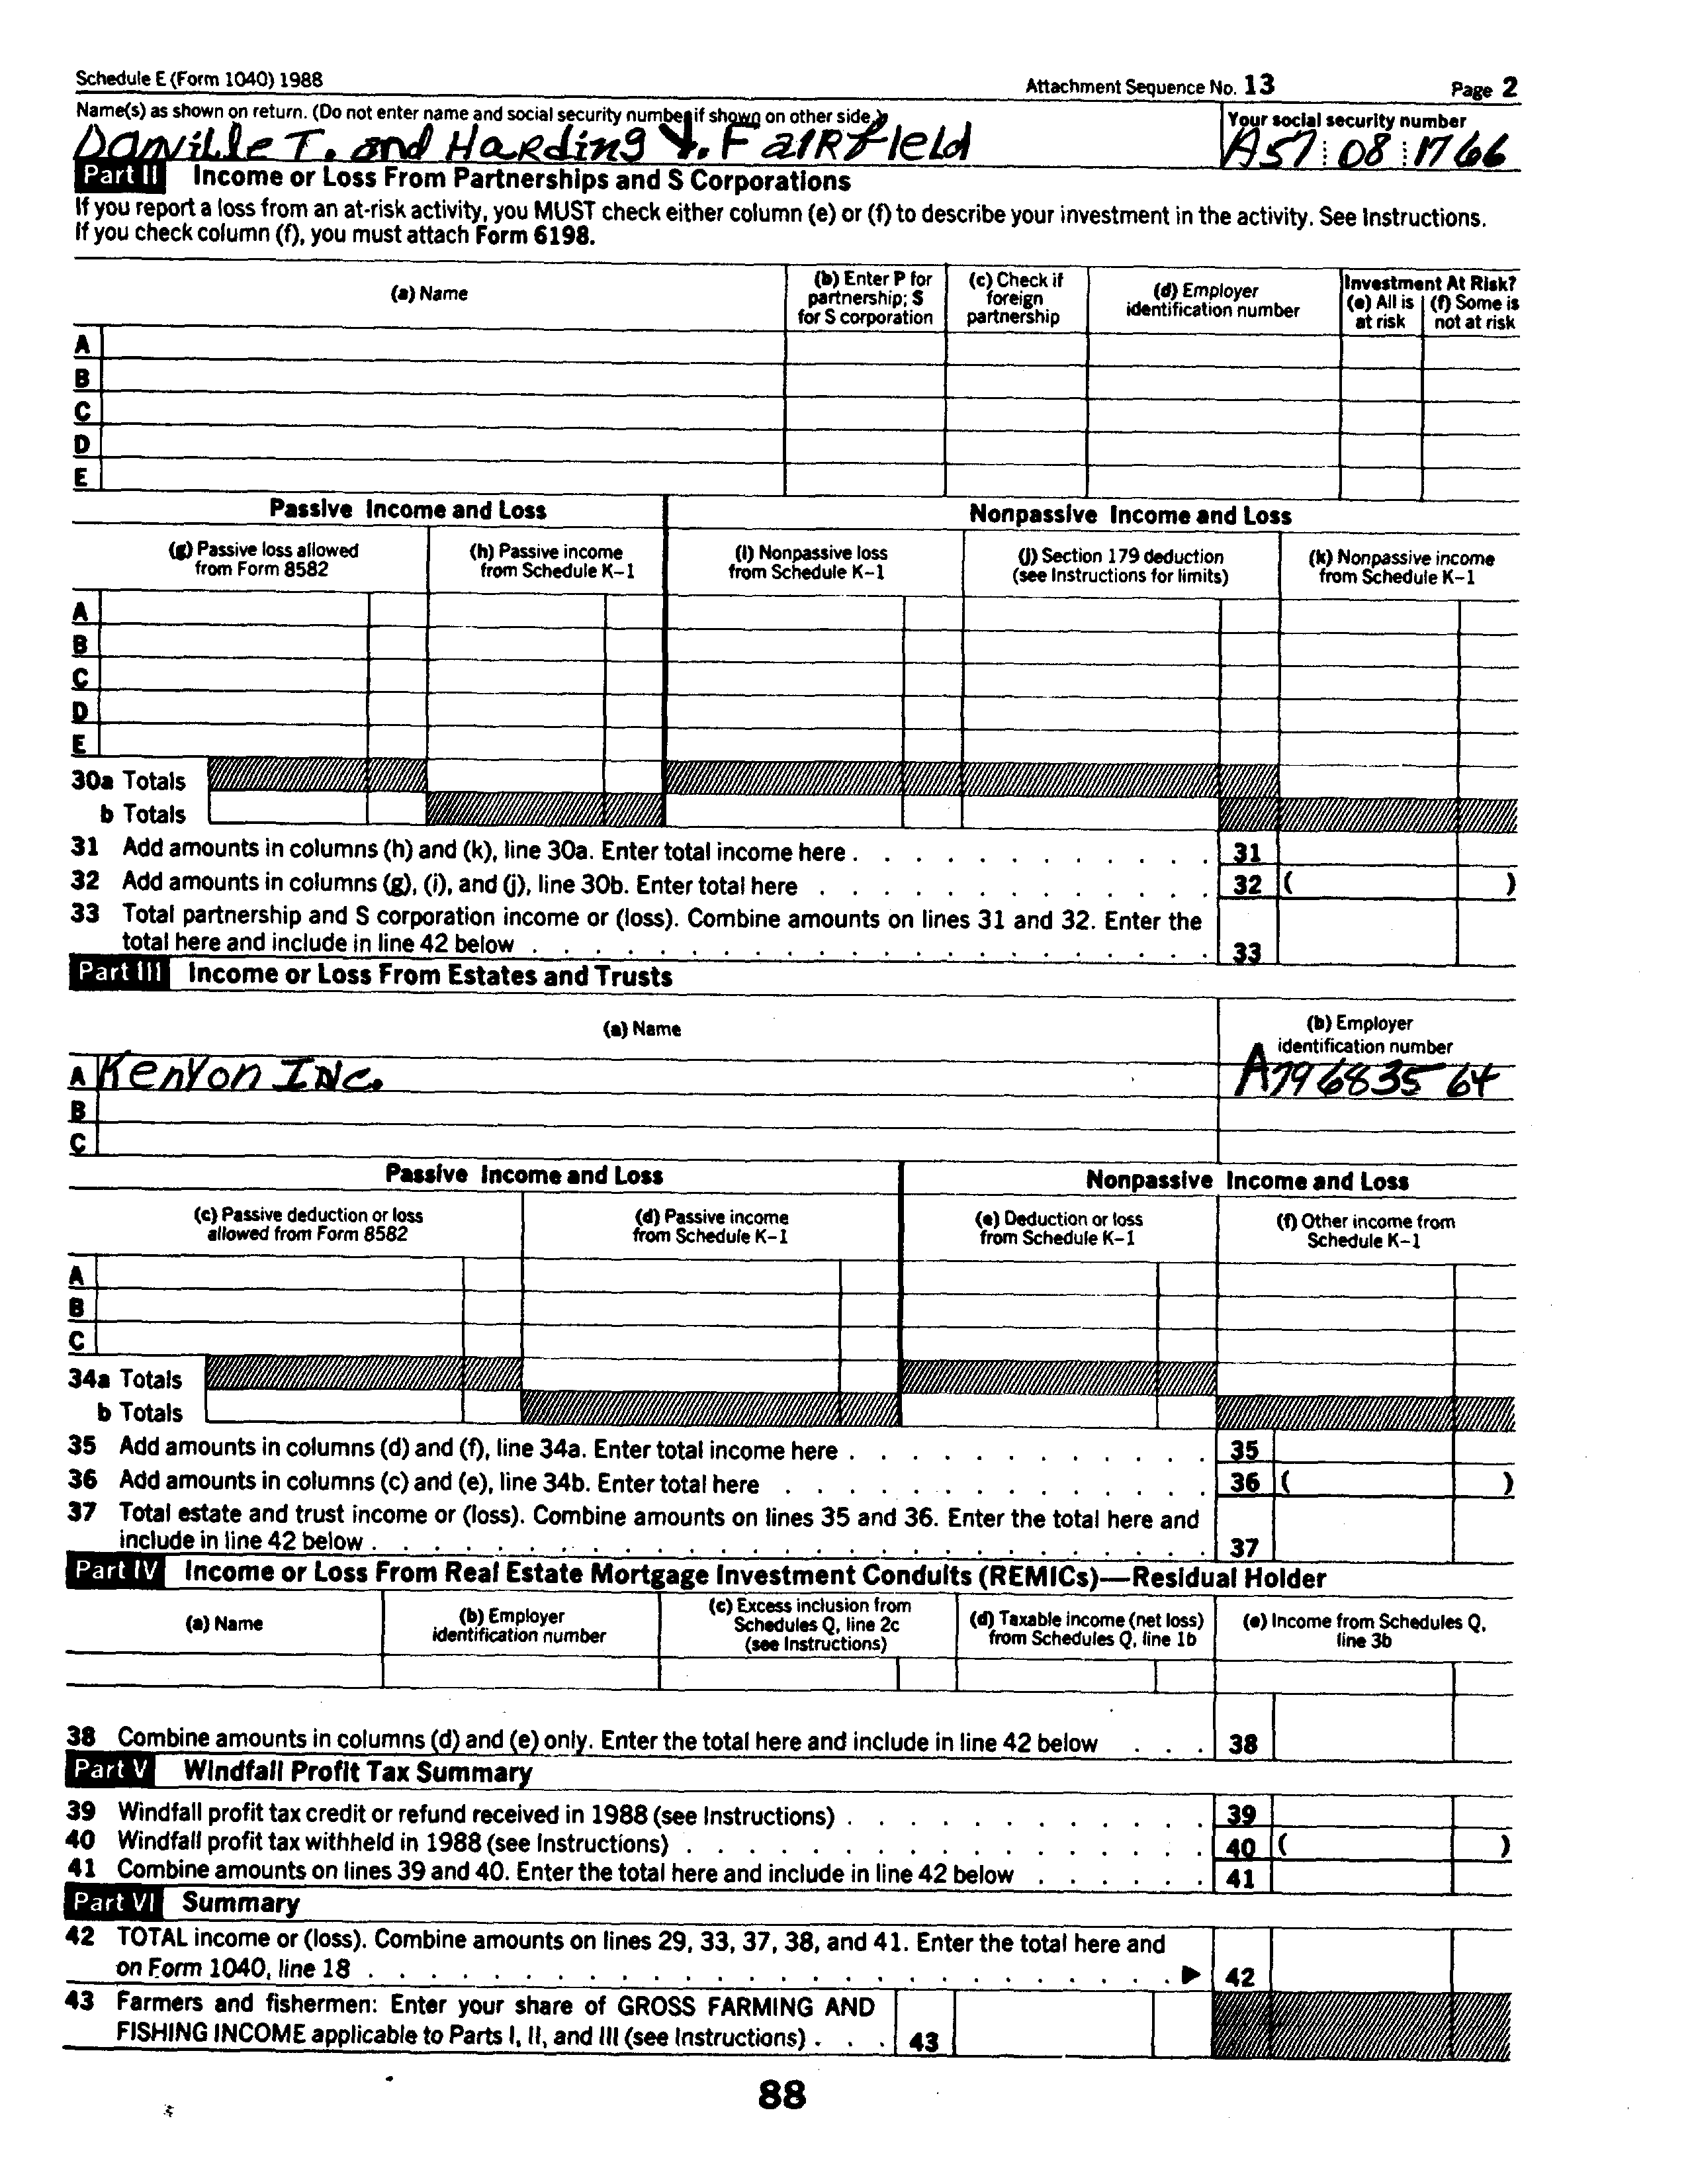 Schedule E (Form 1040) 1988 Attachment Sequence No. 13 Page 2
Name(s) as shown on return. (Do not enter name and social security number if shown on other side.) Your social security number
Danville T. and Harding Y. Fairfield A57 08 1766
Part II Income or Loss From Partnerships and S Corporations
If you report a loss from an at-risk activity, you MUST check either column (e) or (f) to describe your investment in the activity. See Instructions.
If you check column (f), you must attach Form 6198.
(a) Name
(b) Enter P for partnership; S for S corporation
(c) Check if foreign partnership
(d) Employer identification number
Investment At Risk?
(e) All is at risk
(f) Some is not at risk
A
B
C
D
E
Passive Income and Loss Nonpassive Income and Loss
(g) Passive loss allowed from Form 8582
(h) Passive income from Schedule K–1
(i) Nonpassive loss from Schedule K–1
(j) Section 179 deduction (see Instructions for limits)
(k) Nonpassive income from Schedule K–1
A
B
C
D
E
30a Totals
b Totals
31 Add amounts in columns (h) and (k), line 30a. Enter total income here . . . 31
32 Add amounts in columns (g), (i), and (j), line 30b. Enter total here . . . 32 ( )
33 Total partnership and S corporation income or (loss). Combine amounts on lines 31 and 32. Enter the
total here and include in line 42 below . . . 33
Part III Income or Loss From Estates and Trusts
(a) Name
(b) Employer identification number
A Kenyon Inc. A79683564
B
C
Passive Income and Loss Nonpassive Income and Loss
(c) Passive deduction or loss allowed from Form 8582
(d) Passive income from Schedule K–1
(e) Deduction or loss from Schedule K–1
(f) Other income from Schedule K–1
A
B
C
34a Totals
b Totals
35 Add amounts in columns (d) and (f), line 34a. Enter total income here . . . 35
36 Add amounts in columns (c) and (e), line 34b. Enter total here . . . 36 ( )
37 Total estate and trust income or (loss). Combine amounts on lines 35 and 36. Enter the total here and
include in line 42 below . . . 37
Part IV Income or Loss From Real Estate Mortgage Investment Conduits (REMICs)—Residual Holder
(a) Name
(b) Employer identification number
(c) Excess inclusion from Schedules Q, line 2c (see Instructions)
(d) Taxable income (net loss) from Schedules Q, line 1b
(e) Income from Schedules Q, line 3b
38 Combine amounts in columns (d) and (e) only. Enter the total here and include in line 42 below . . . 38
Part V Windfall Profit Tax Summary
39 Windfall profit tax credit or refund received in 1988 (see Instructions) . . . 39
40 Windfall profit tax withheld in 1988 (see Instructions) . . . 40 ( )
41 Combine amounts on lines 39 and 40. Enter the total here and include in line 42 below . . . 41
Part VI Summary
42 TOTAL income or (loss). Combine amounts on lines 29, 33, 37, 38, and 41. Enter the total here and
on Form 1040, line 18 . . . ▶ 42
43 Farmers and fishermen: Enter your share of GROSS FARMING AND
FISHING INCOME applicable to Parts I, II, and III (see Instructions) . . . 43
88